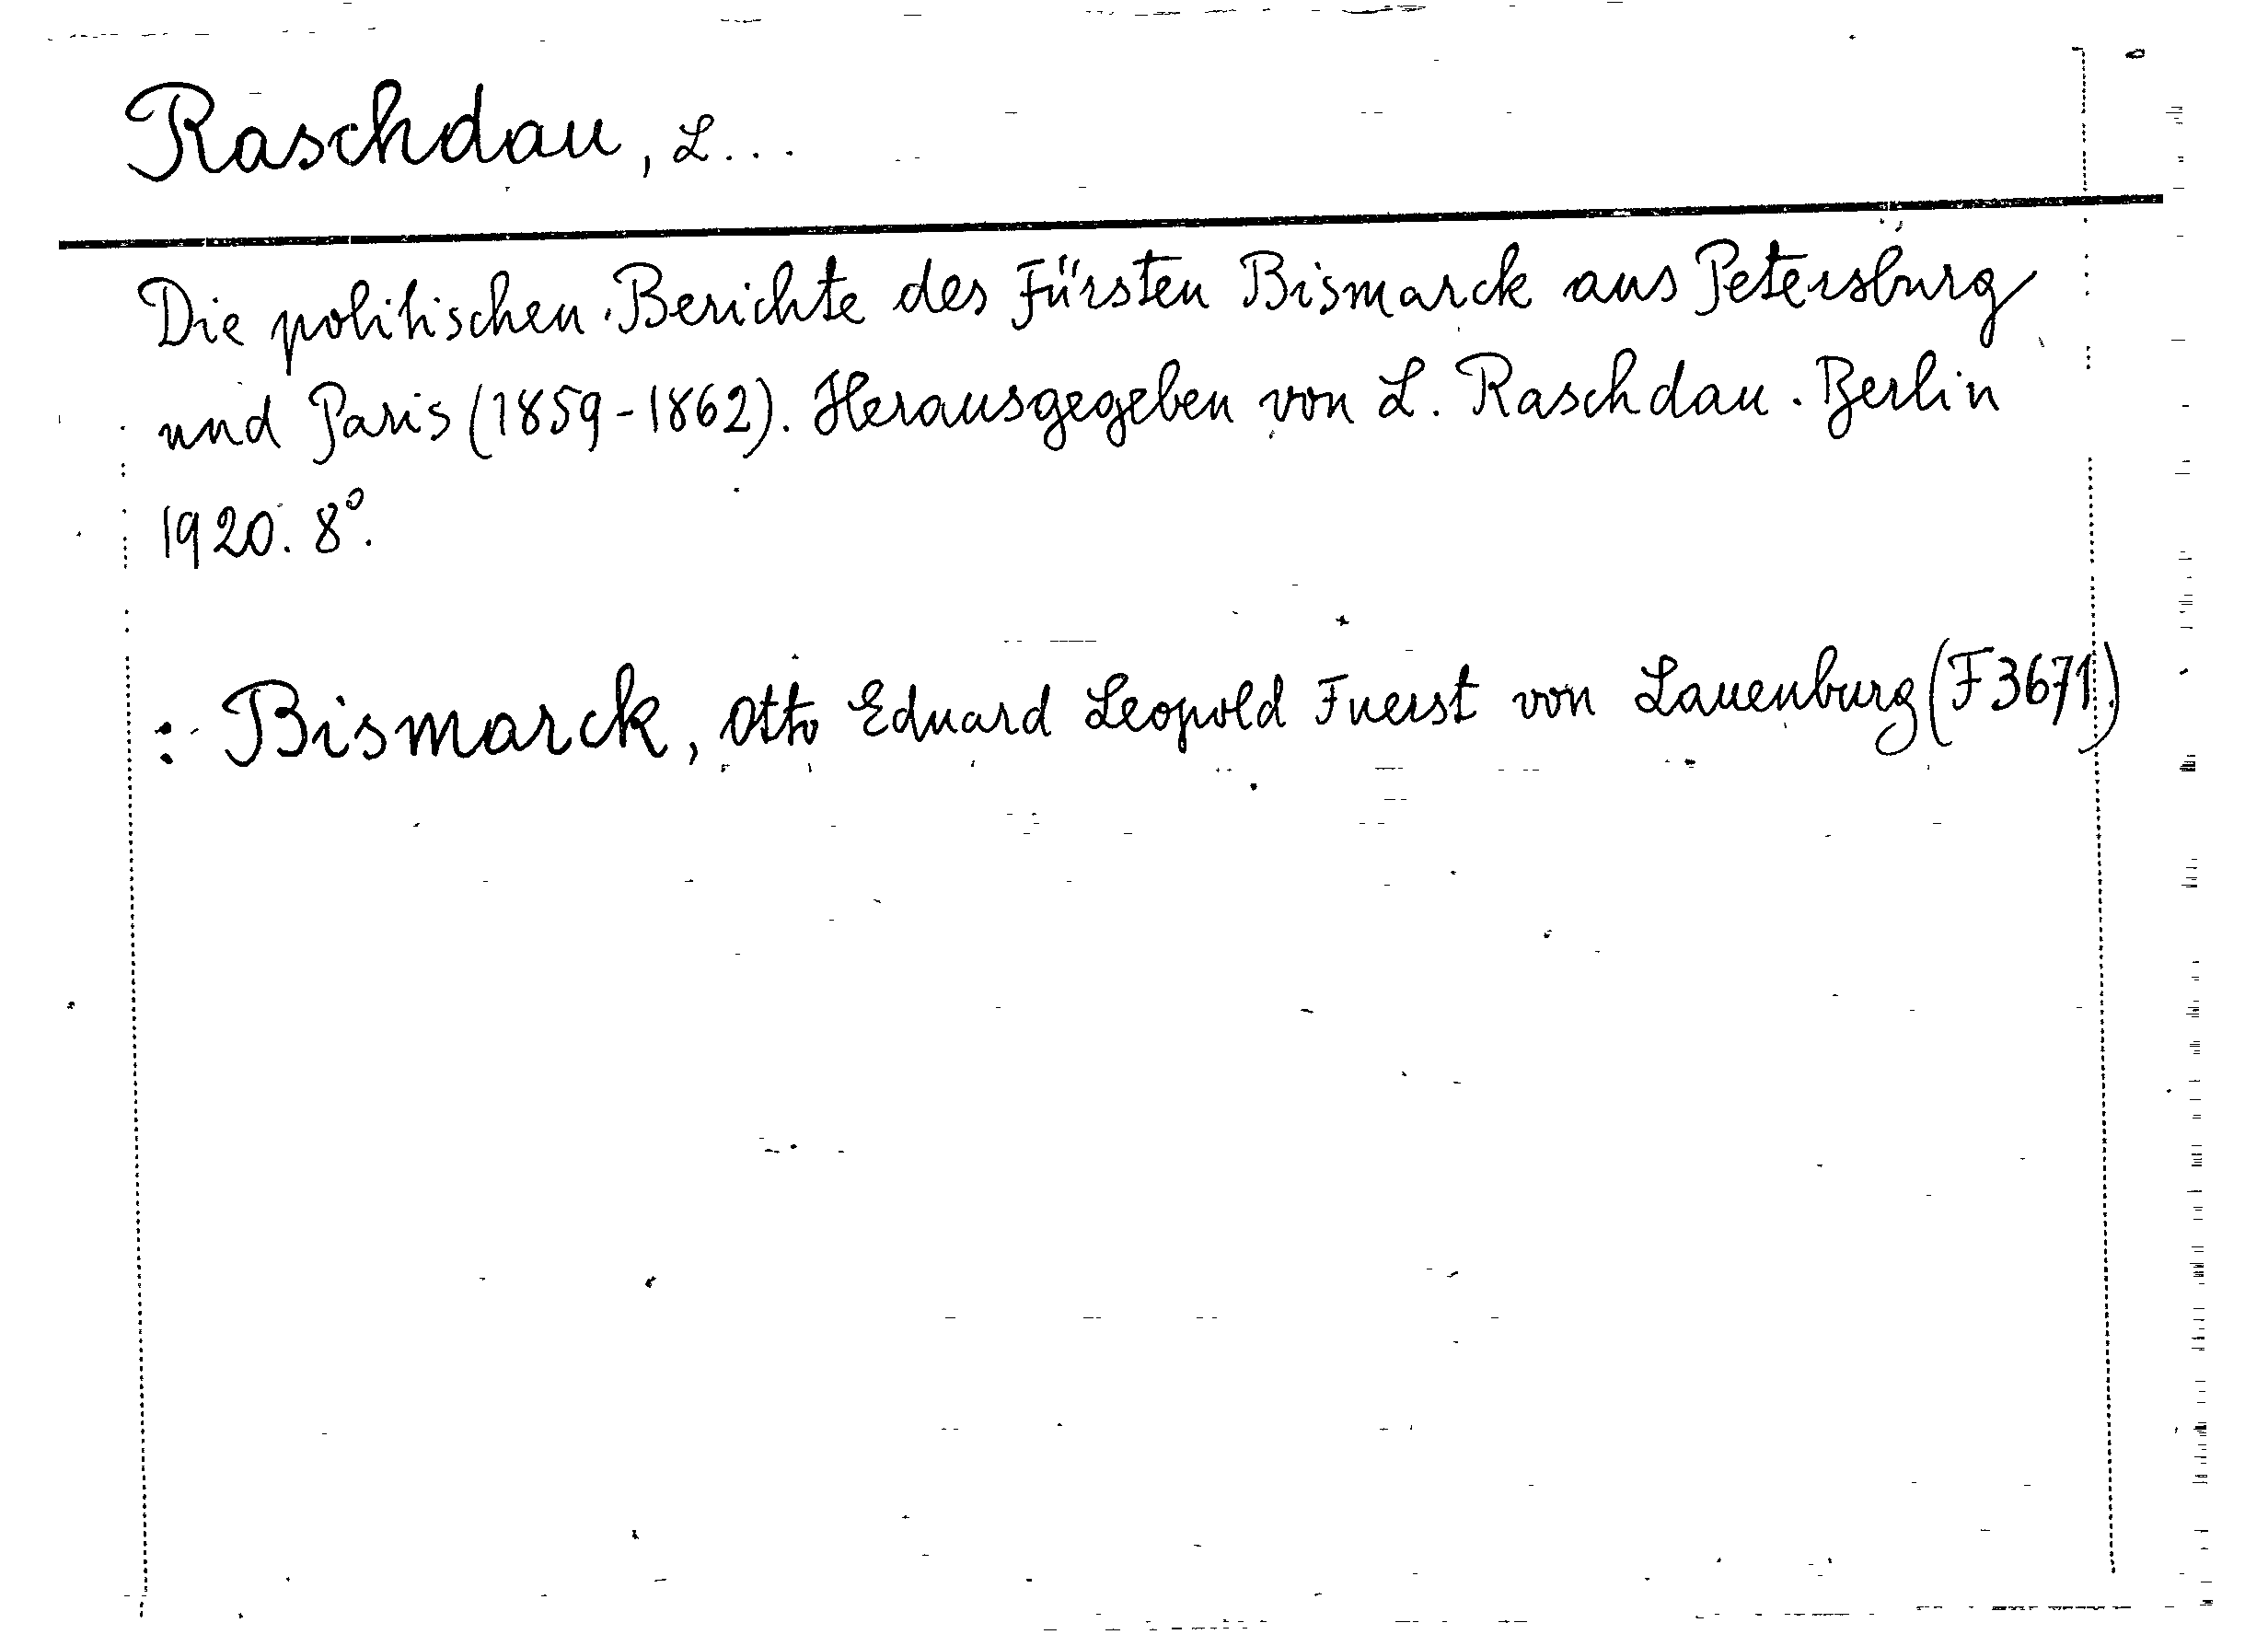 Raschdau, L...
Die politischen Berichte des Fürsten Bismarck aus Petersburg
und Paris (1859-1862). Herausgegeben von L. Raschdau. Berlin
1920. 8°.
: Bismarck, Otto Eduard Leopold Fuerst von Lauenburg (F3671.)